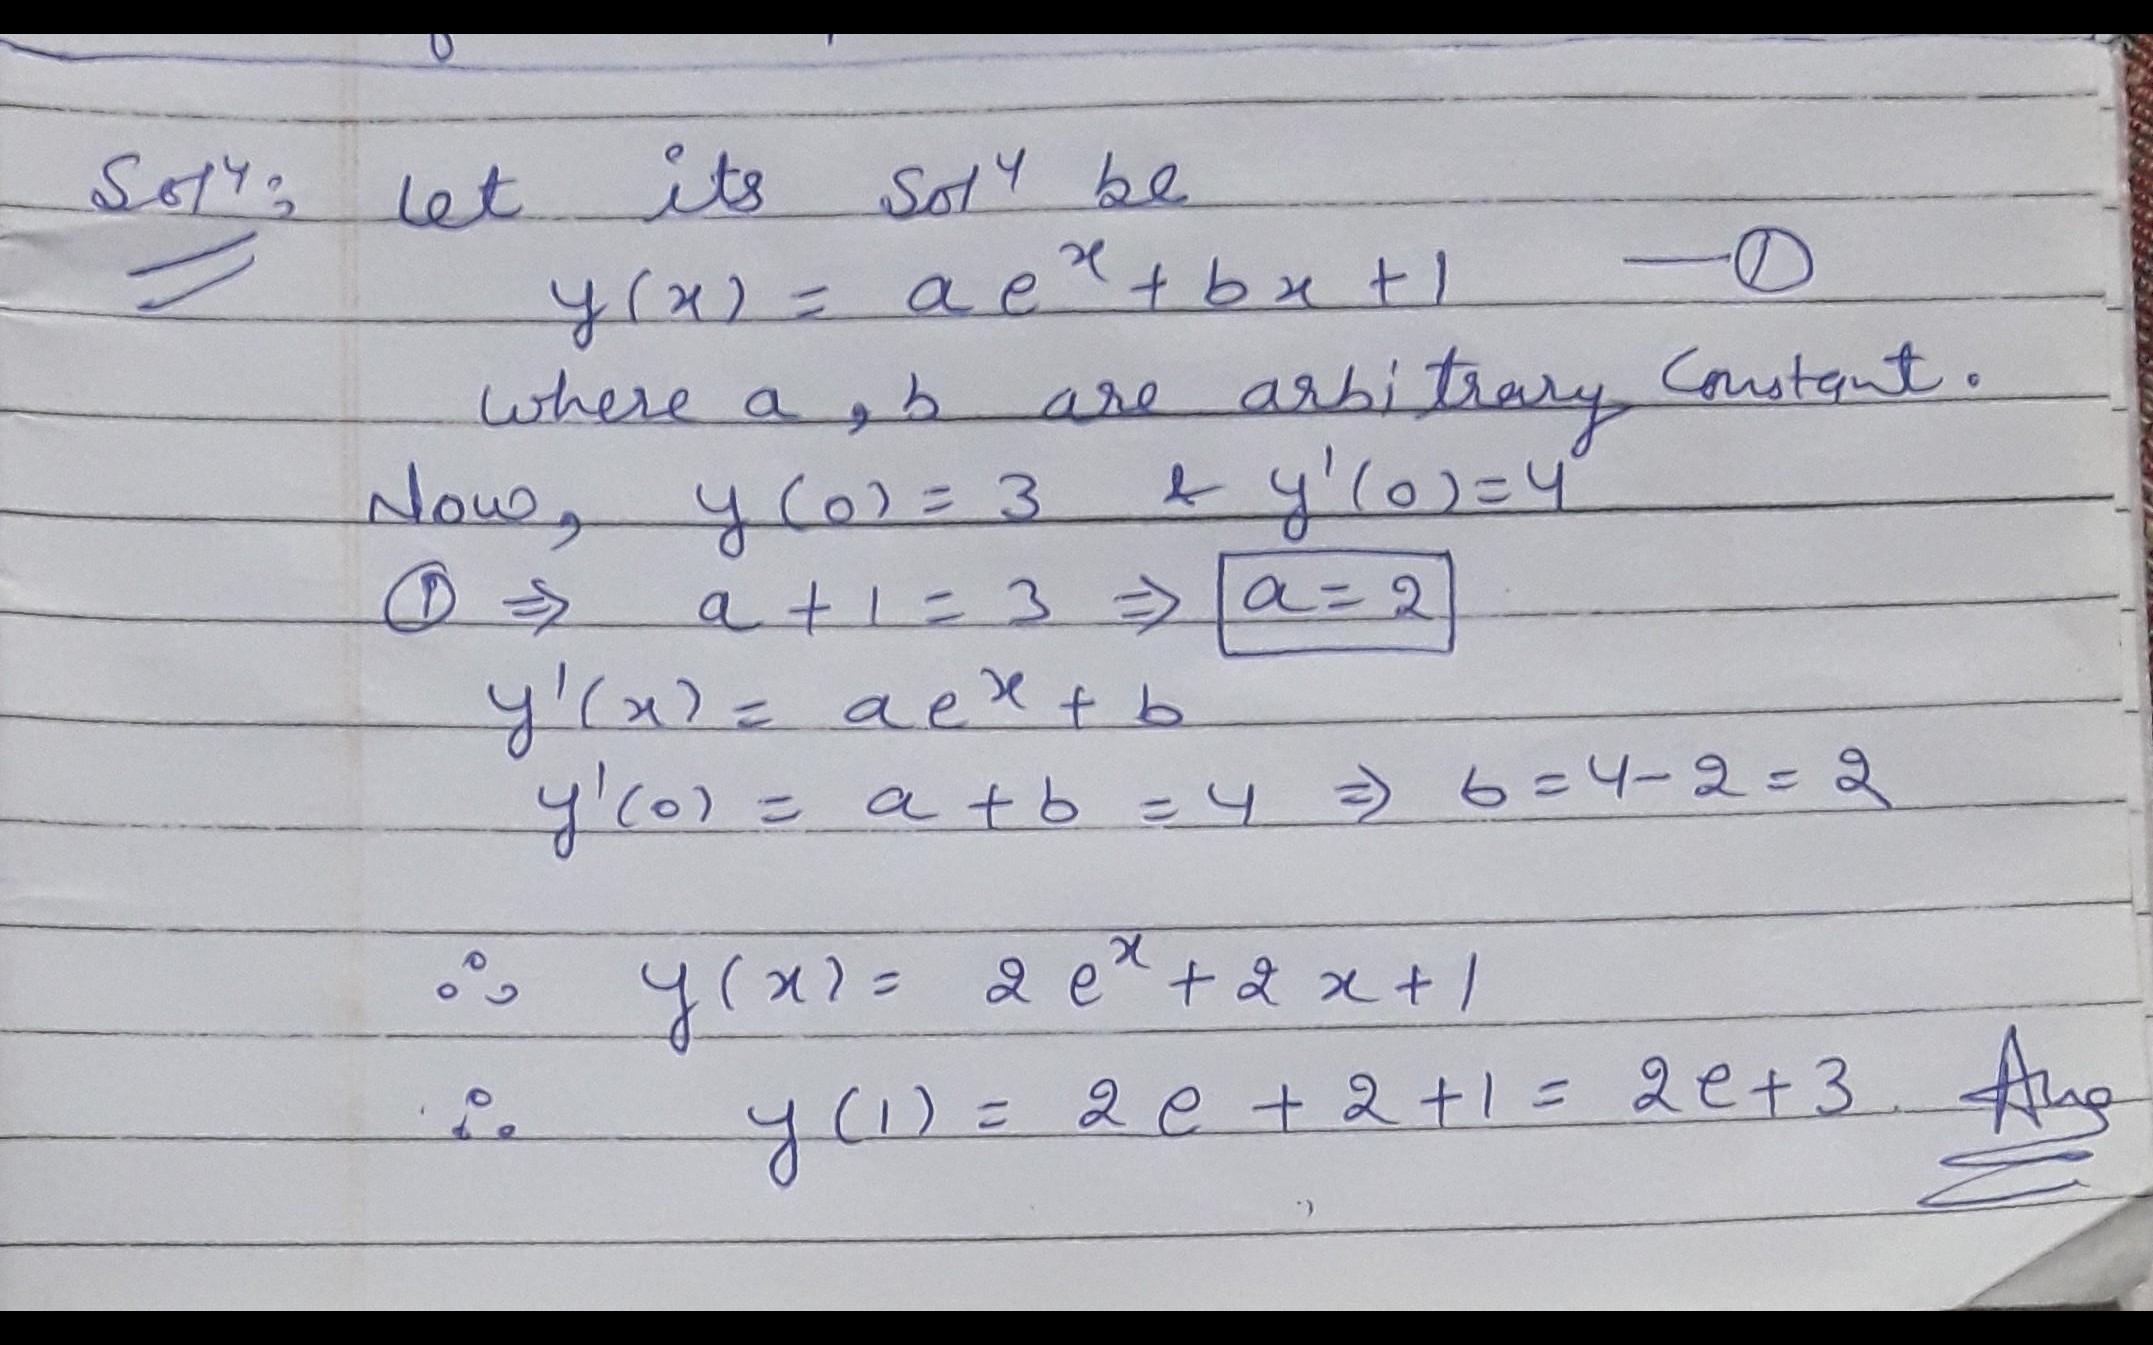 Solⁿ: let its solⁿ be
y(x) = a eˣ + bx + 1 —①
where a, b are arbitrary constant.
Now, y(0) = 3 & y'(0) = 4
① ⇒ a + 1 = 3 ⇒ a = 2
y'(x) = a eˣ + b
y'(0) = a + b = 4 ⇒ b = 4 - 2 = 2
∴ y(x) = 2 eˣ + 2 x + 1
∴ y(1) = 2 e + 2 + 1 = 2e + 3. Ans